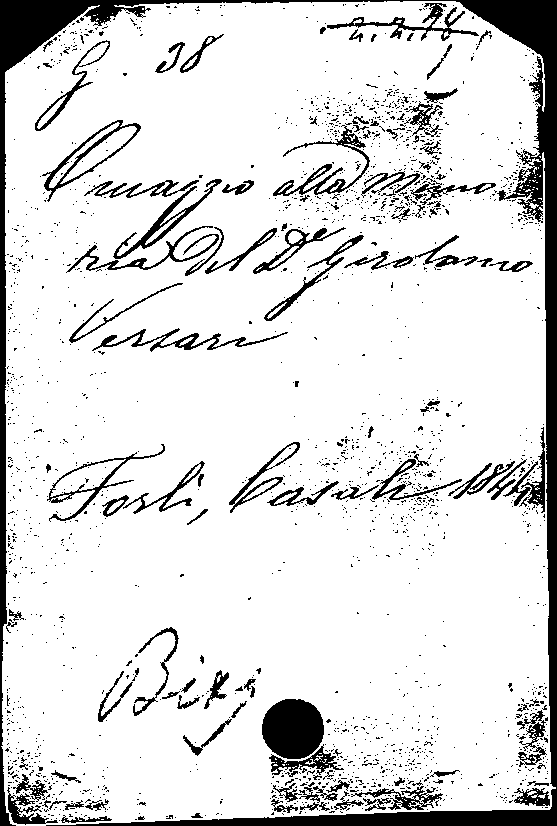 G. 38
Omaggio alla memo-
ria del D.r Girolamo
Versari
Forlì, Casali 1844